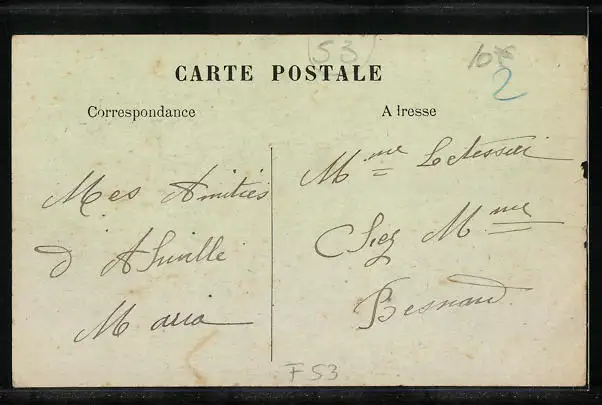 (53)
10€
2
CARTE POSTALE
Correspondance
Adresse
Mes Amitiés
d'
Maria
Mme Letessier
Chez Mme
Besnard
F 53